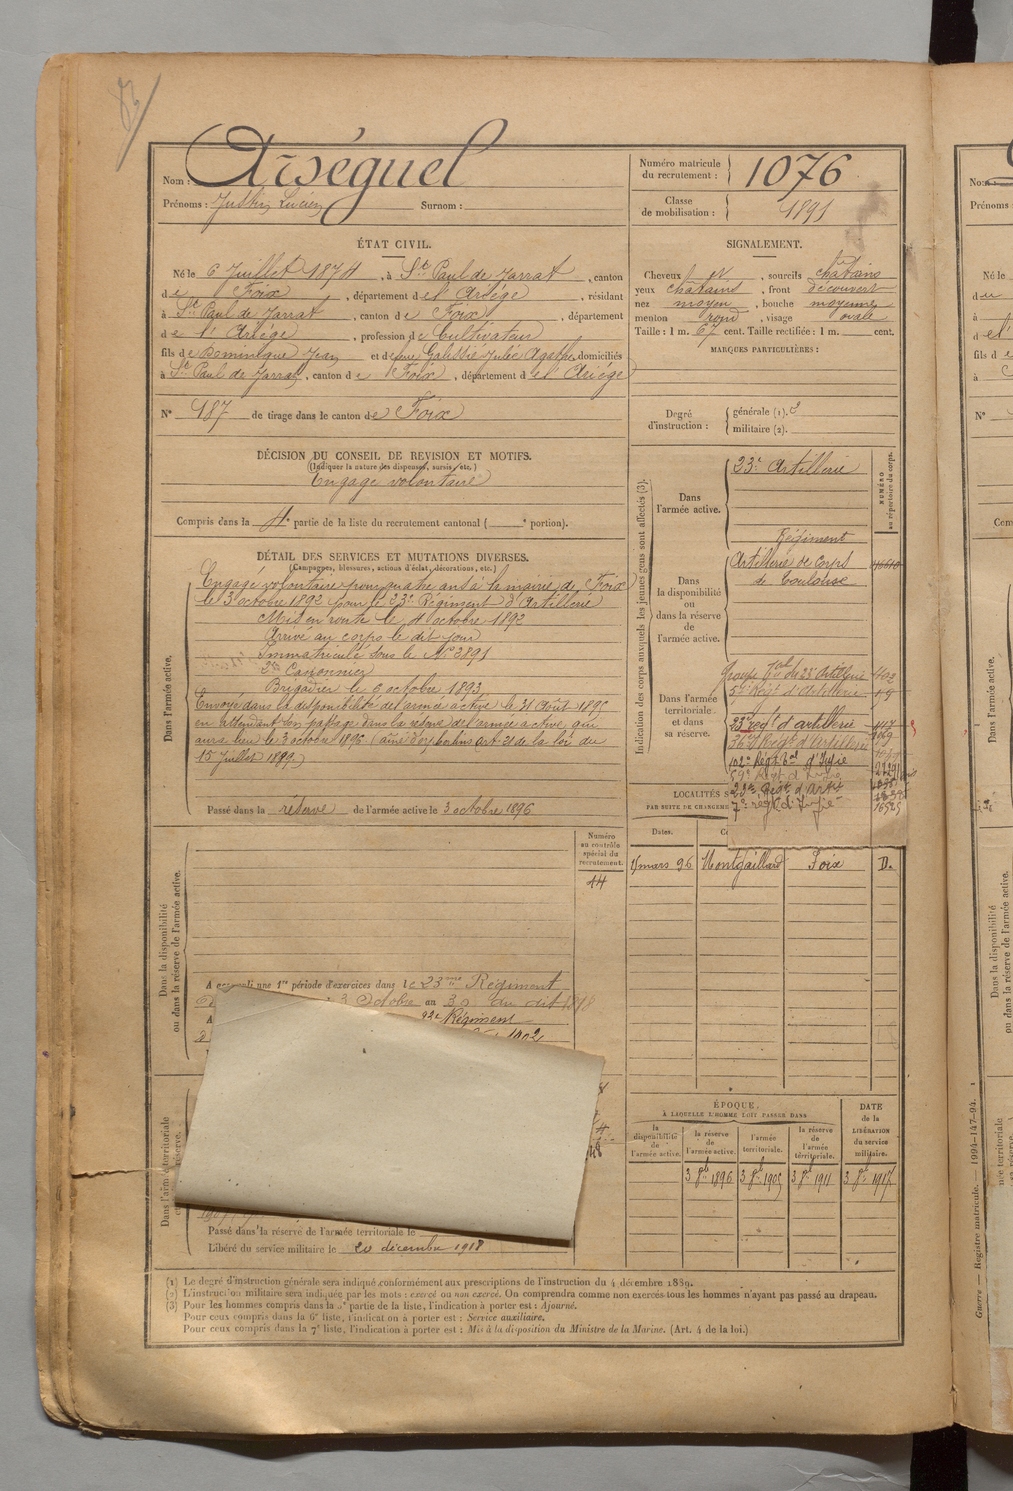 Nom : Arséguel
Prénoms : Justin, Lucien Surnom :
Numéro matricule du recrutement : 1076
Classe de mobilisation : 1891
ÉTAT CIVIL.
Né le 6 Juillet 1874, à St Paul de Jarrat, canton
de Foix, département de l'Ariége, résidant
à St Paul de Jarrat, canton de Foix, département
de l'Ariége, profession de Cultivateur
fils de Dominique Jean et de feue Galissié Julie Agathe domiciliés
à St Paul de Jarrat, canton de Foix, département de l'Ariége
N° 187 de tirage dans le canton de Foix
SIGNALEMENT.
Cheveux et, sourcils chatains
yeux chatains, front découvert
nez moyen, bouche moyenne
menton rond, visage ovale
Taille : 1 m. 67 cent. Taille rectifiée : 1 m. cent.
MARQUES PARTICULIÈRES :
Degré d'instruction : générale (1). 3
militaire (2).
DÉCISION DU CONSEIL DE REVISION ET MOTIFS.
(Indiquer la nature des dispenses, sursis, etc.)
Engagé volontaire
Compris dans la 4e partie de la liste du recrutement cantonal ( e portion).
DÉTAIL DES SERVICES ET MUTATIONS DIVERSES.
(Campagnes, blessures, actions d'éclat, décorations, etc.)
Dans l'armée active.
Engagé volontaire pour quatre ans à la mairie de Foix
le 3 octobre 1892 pour le 23e Régiment d'Artillerie
Mis en route le 4 octobre 1892
Arrivé au corps le dit jour
Immatriculé sous le N° 3891
2me Canonnier
Brigadier le 6 octobre 1893
Envoyé dans la disponibilité de l'armée active le 31 Août 1895
en attendant son passage dans la réserve de l'armée active, qui
aura lieu le 3 octobre 1896
15 Juillet 1889.)
Passé dans la réserve de l'armée active le 3 octobre 1896
Indication des corps auxquels les jeunes gens sont affectés (3).
NUMÉRO au répertoire du corps.
Dans l'armée active.
23e Artillerie
Dans la disponibilité ou dans la réserve de l'armée active.
Régiment
Artillerie de corps
de Toulouse
Dans l'armée territoriale et dans sa réserve.
Groupe du 23e Artillerie 402
5me Régt d'Artillerie 19
23e régt d'artillerie
36e Régt d'Artillerie
102e Régt d'Infie
59e Régt d'Infie
23e Régt d'Artie
7e régt d'Infie
LOCALITÉS S
PAR SUITE DE CHANGEME
Dates.
mars 96 Montgaillard Foix D.
Numéro au contrôle spécial du recrutement.
44
Dans la disponibilité ou dans la réserve de l'armée active.
une 1re période d'exercices dans le 23me Régiment
3 Octobre au 30 du dit
92e Régiment
1902
Dans l'armée territoriale
Passé dans la réserve de l'armée territoriale le
Libéré du service militaire le 20 décembre 1918
ÉPOQUE
À LAQUELLE L'HOMME DOIT PASSER DANS
la disponibilité de l'armée active.
la réserve de l'armée active.
l'armée territoriale.
la réserve de l'armée territoriale.
DATE de la LIBÉRATION du service militaire.
3 8bre 1896 3 8bre 1905 3 8bre 1911 3 8bre 1917
(1) Le degré d'instruction générale sera indiqué conformément aux prescriptions de l'instruction du 4 décembre 1889.
(2) L'instruction militaire sera indiquée par les mots : exercé ou non exercé. On comprendra comme non exercés tous les hommes n'ayant pas passé au drapeau.
(3) Pour les hommes compris dans la partie de la liste, l'indication à porter est : Ajourné.
Pour ceux compris dans la 6e liste, l'indication à porter est : Service auxiliaire.
Pour ceux compris dans la 7e liste, l'indication à porter est : Mis à la disposition du Ministre de la Marine. (Art. 4 de la loi.)
Guerre — Registre matricule. — 1994-147-94.